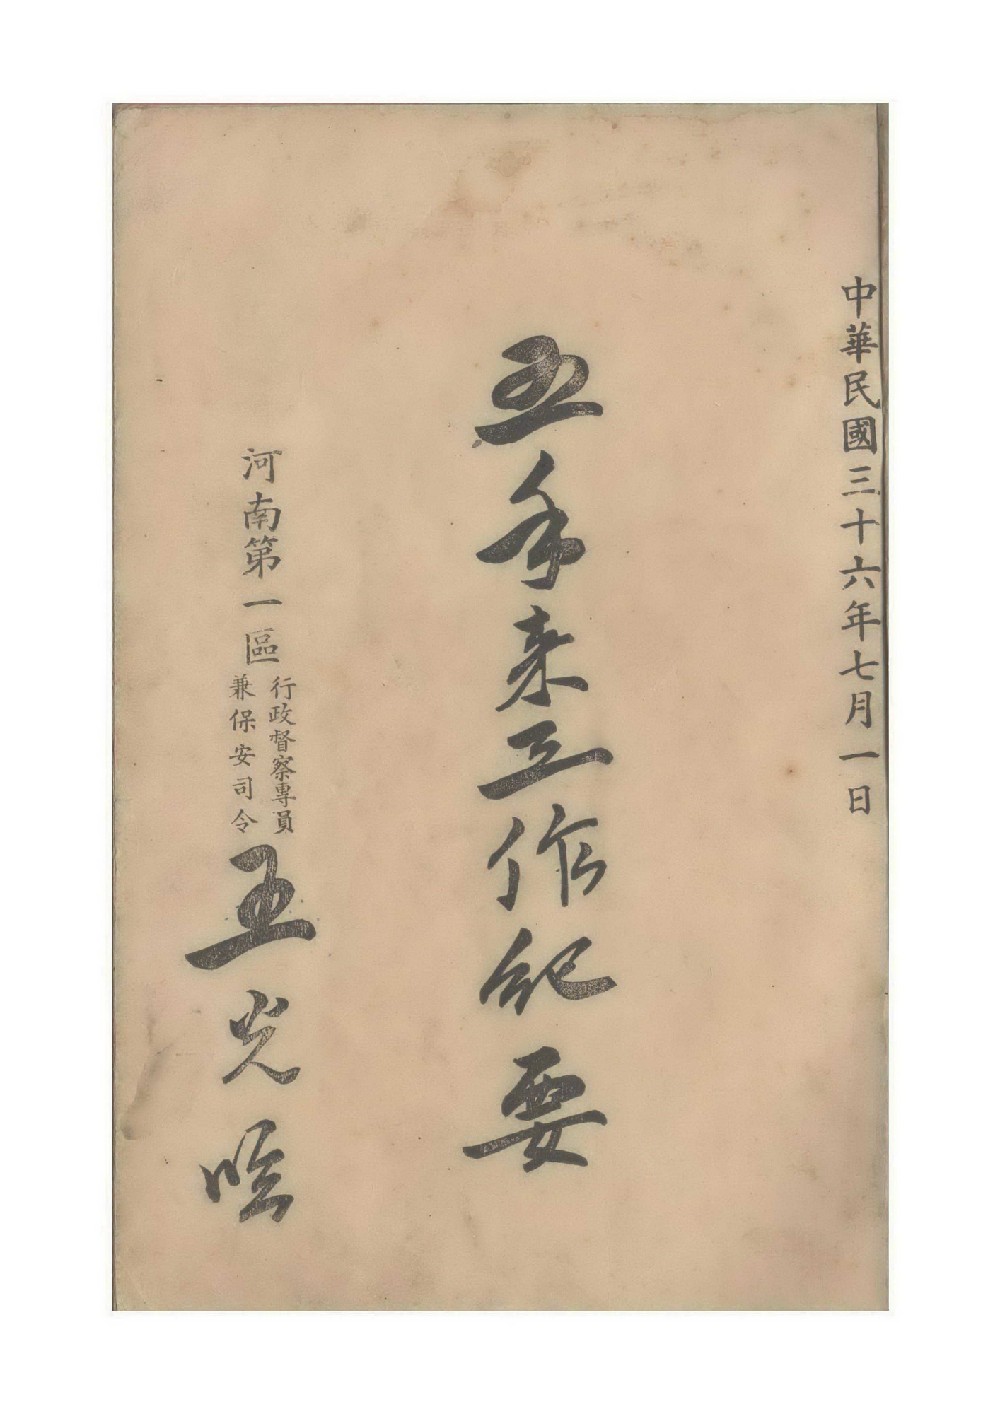 中華民國三十六年七月一日
五年来工作紀要
河南第一區
行政督察專員
兼保安司令
王光臨